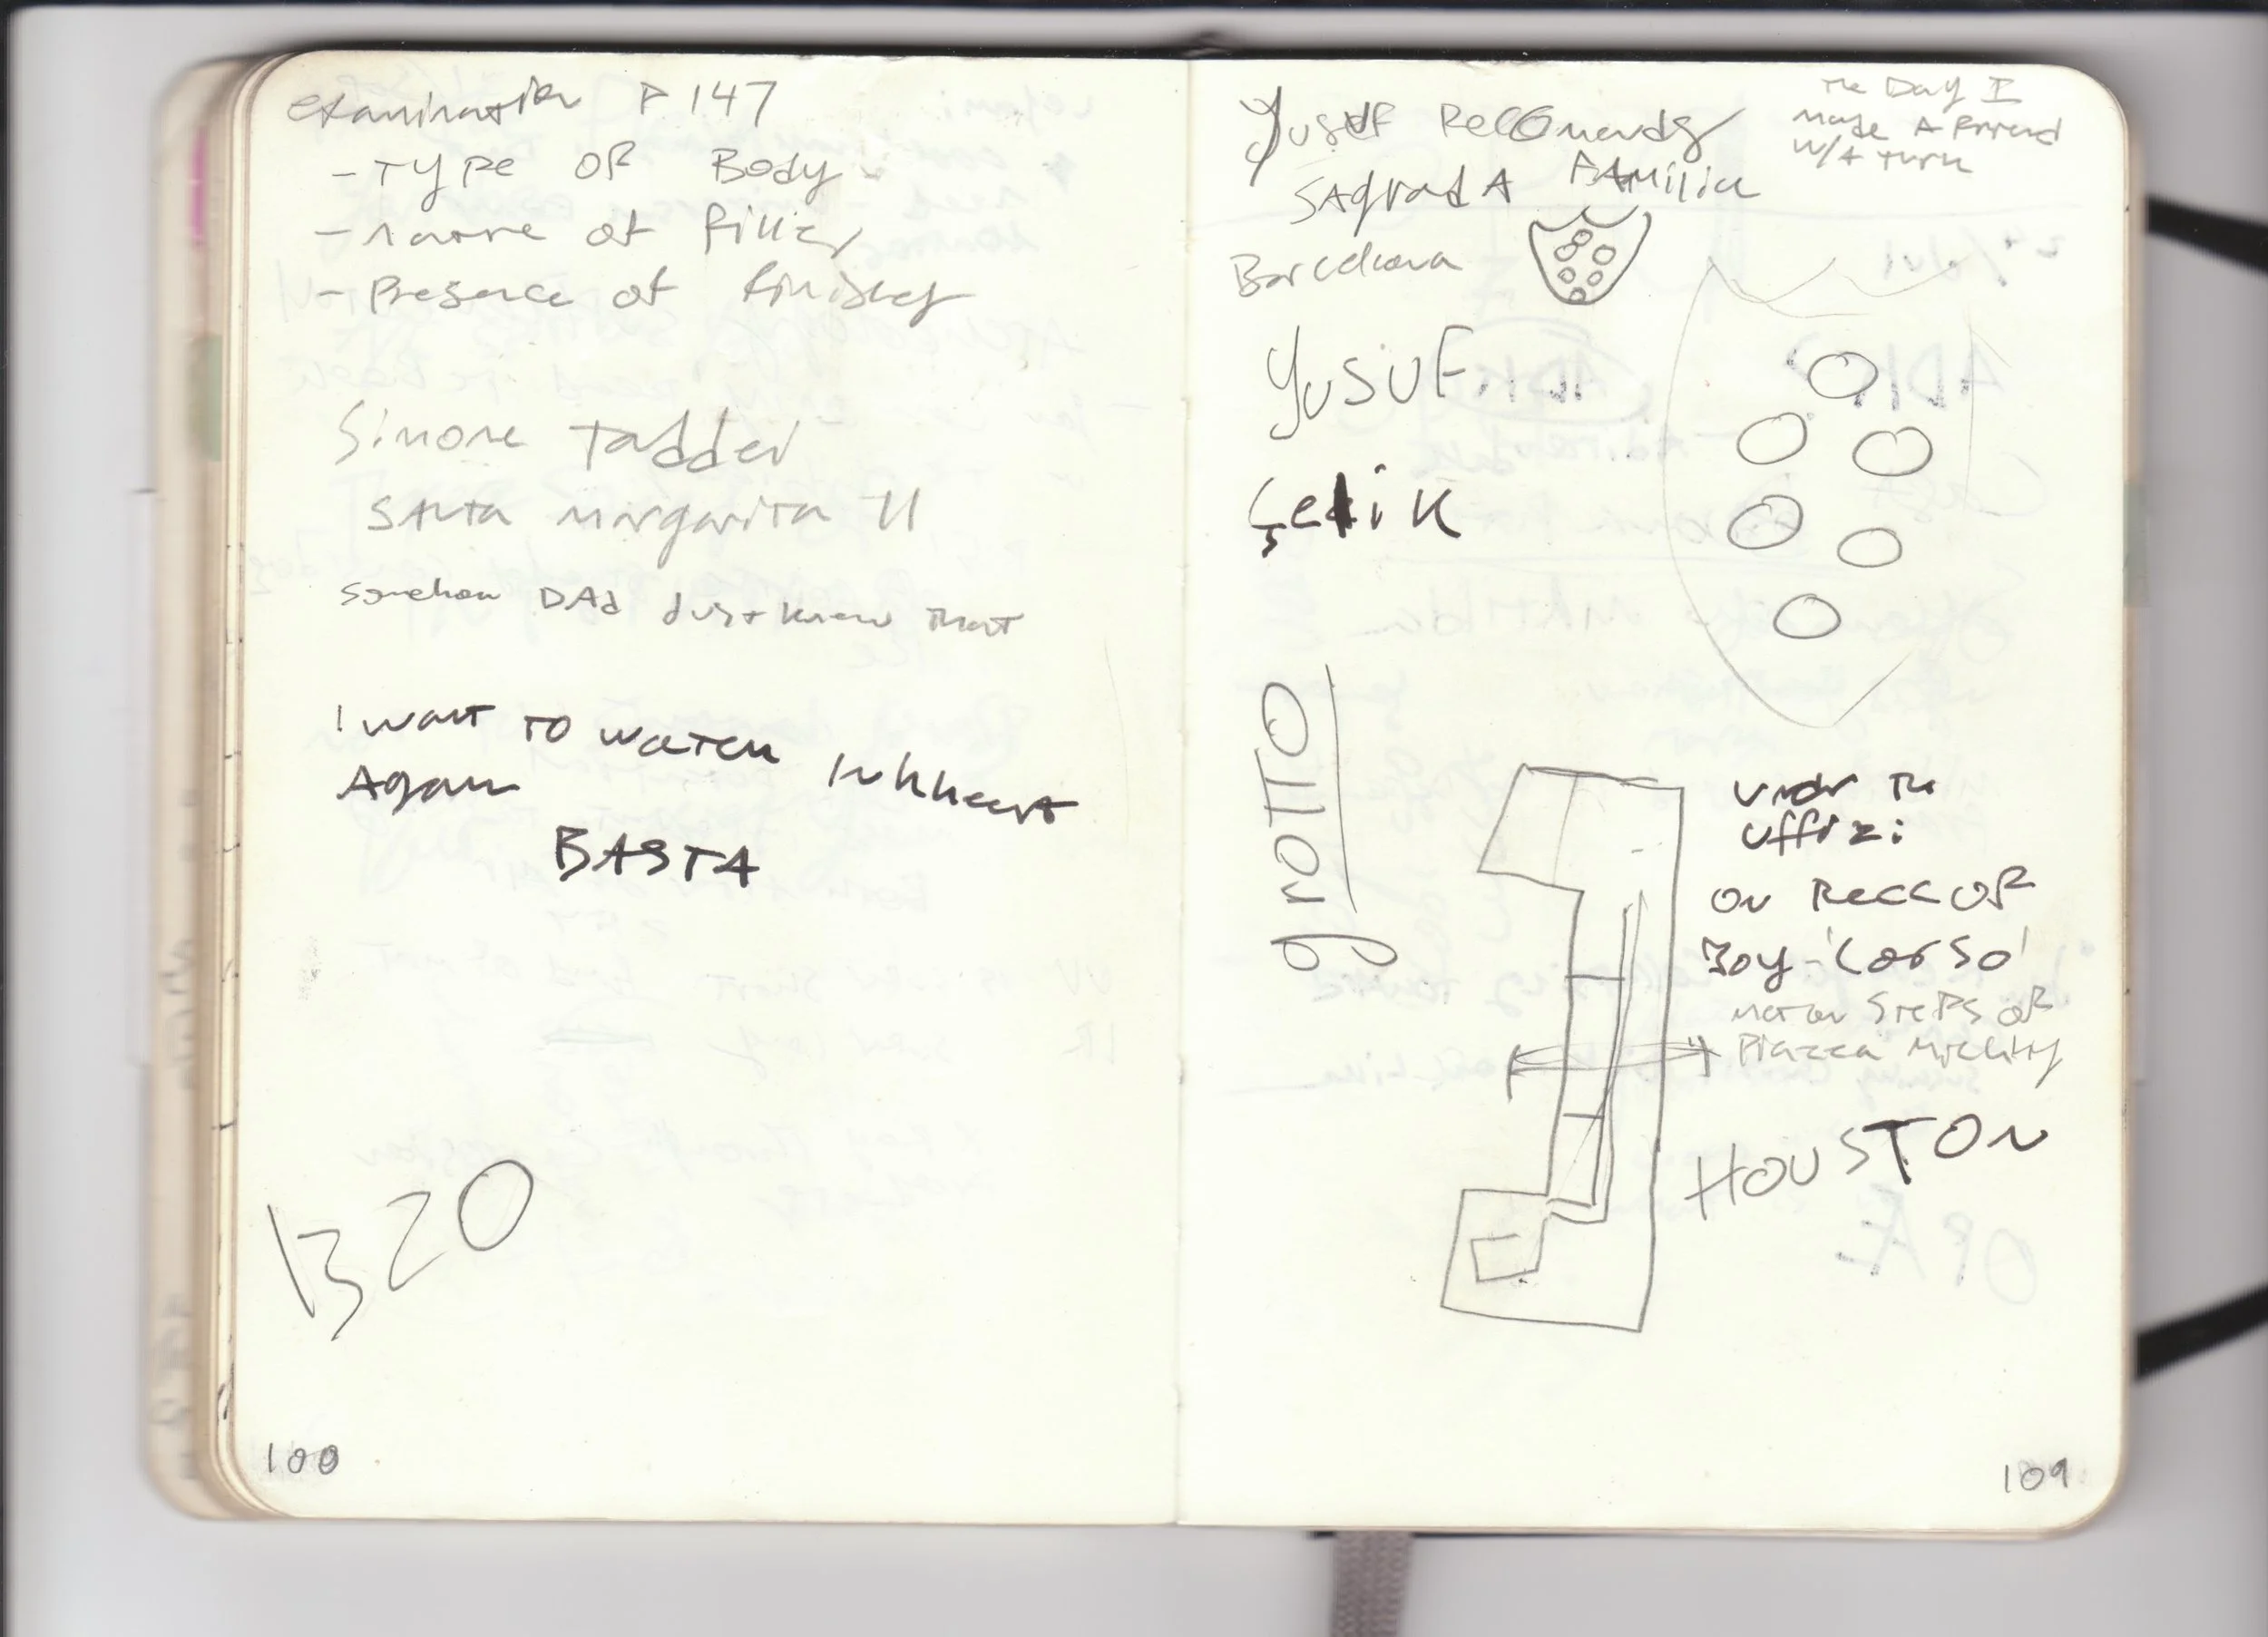 Examination P 147
- Type of Body
- nature of filler
- Presence of finisher
Simone Taddei
Santa Margarita 11
Somehow DAd just knew that
I want to watch Inkheart
Again
BASTA
1320
Yusuf Recomends
Sagrada Familia
Barcelona
The Day I
made A friend
w/A Turk
YUSUF
Çelik
grotto
Under the
Uffizi
On Recc of
Boy 'Corso'
Steps of
Piazza
HOUSTON
109